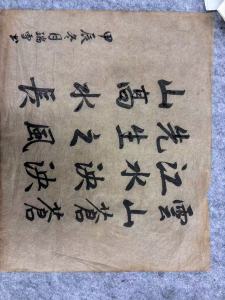 雲山蒼蒼
江水泱泱
先生之風
山高水長
甲辰冬月瑞雪书